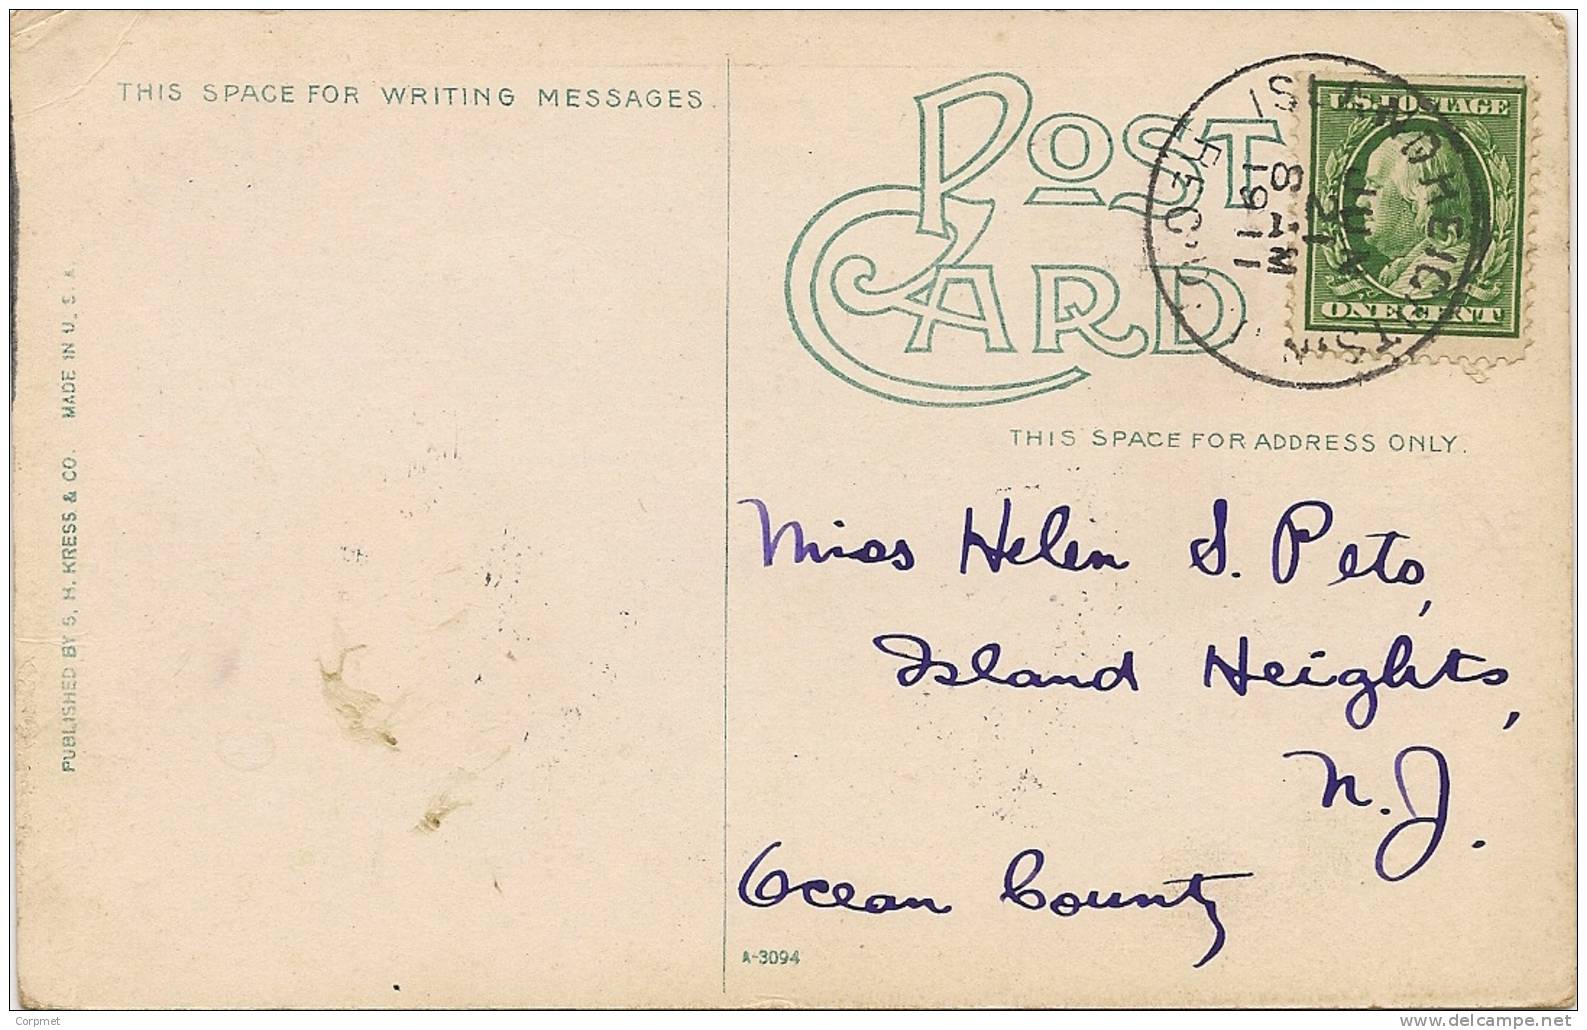 THIS SPACE FOR WRITING MESSAGES.
POST
CARD
U.S. POSTAGE
ONE CENT
ISLAND HEIGHTS
8
1911
REC'D.
THIS SPACE FOR ADDRESS ONLY.
Miss Helen S. Peto,
Island Heights,
N.J.
Ocean County
A-3094
PUBLISHED BY S. H. KRESS & CO. MADE IN U. S. A.
Corpmet
delcampe.net